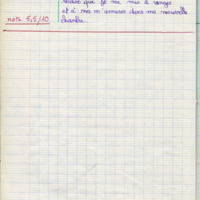 que je me mis à ranger
et à m'amuser dans ma nouvelle
chambre.
note 5,5/10